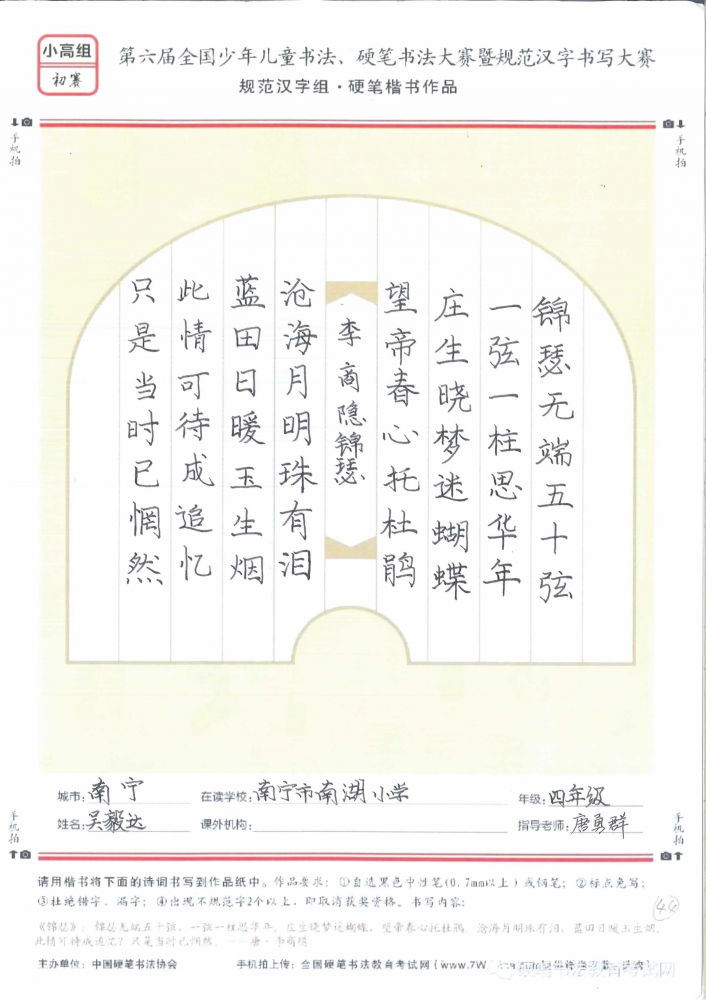 小高组
初赛
第六届全国少年儿童书法、硬笔书法大赛暨规范汉字书写大赛
规范汉字组·硬笔楷书作品
手机拍
手机拍
锦瑟无端五十弦
一弦一柱思华年
庄生晓梦迷蝴蝶
望帝春心托杜鹃
李商隐锦瑟
沧海月明珠有泪
蓝田日暖玉生烟
此情可待成追忆
只是当时已惘然
城市:南宁
在读学校:南宁市南湖小学
年级:四年级
姓名:吴毅达
课外机构:
指导老师:唐勇群
手机拍
手机拍
请用楷书将下面的诗词书写到作品纸中。作品要求:①自选黑色中性笔(0.7mm以上)或钢笔;②标点免写;
③杜绝错字、漏字;④出现不规范字2个以上,即取消获奖资格。书写内容:
44
《锦瑟》:锦瑟无端五十弦,一弦一柱思华年。庄生晓梦迷蝴蝶,望帝春心托杜鹃。沧海月明珠有泪,蓝田日暖玉生烟。
此情可待成追忆?只是当时已惘然。——唐·李商隐
主办单位:中国硬笔书法协会
手机拍上传:全国硬笔书法教育考试网(www.7W
硬笔书法教育考试网